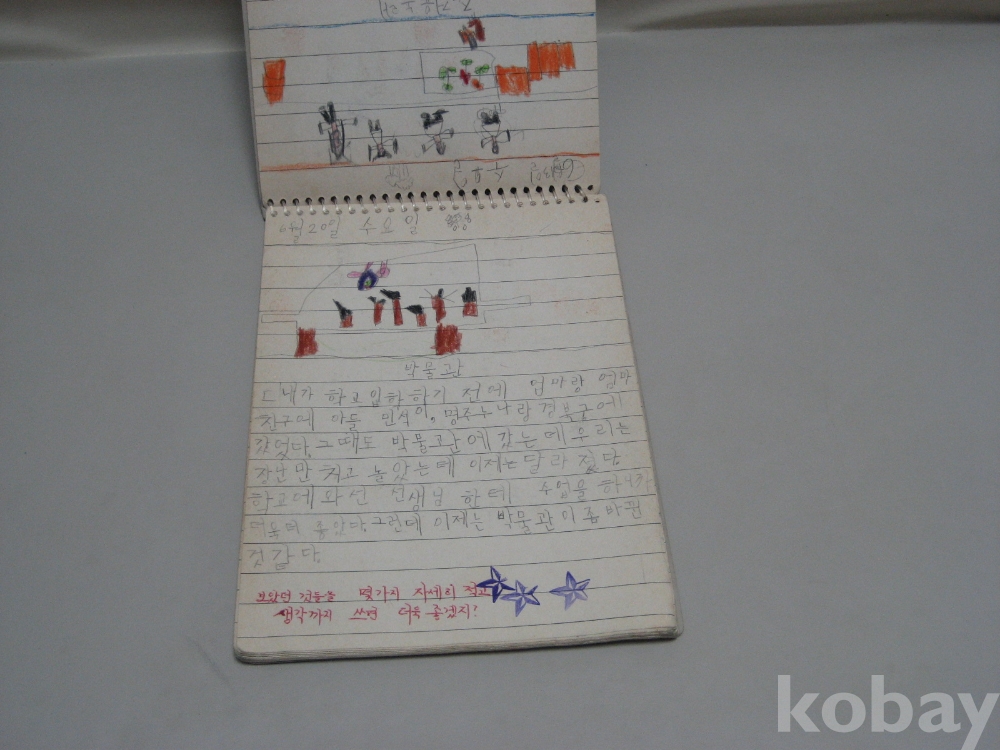 6월 20일 수요일
박물관
내가 학교입학하기 전에 엄마랑 엄마
친구네 아들 민석이, 명주누나랑 경복궁에
갔었다. 그때도 박물관에 갔는데 우리는
장난만 치고 놀았는데 이제는 달라졌다.
학교에 와선 선생님 한테 수업을 하니까
더욱더 좋았다. 그런데 이제는 박물관이 좀 바뀐
것 같다.
보았던 것들을 몇가지 자세히 적고
생각까지 쓰면 더욱 좋겠지?
kobay